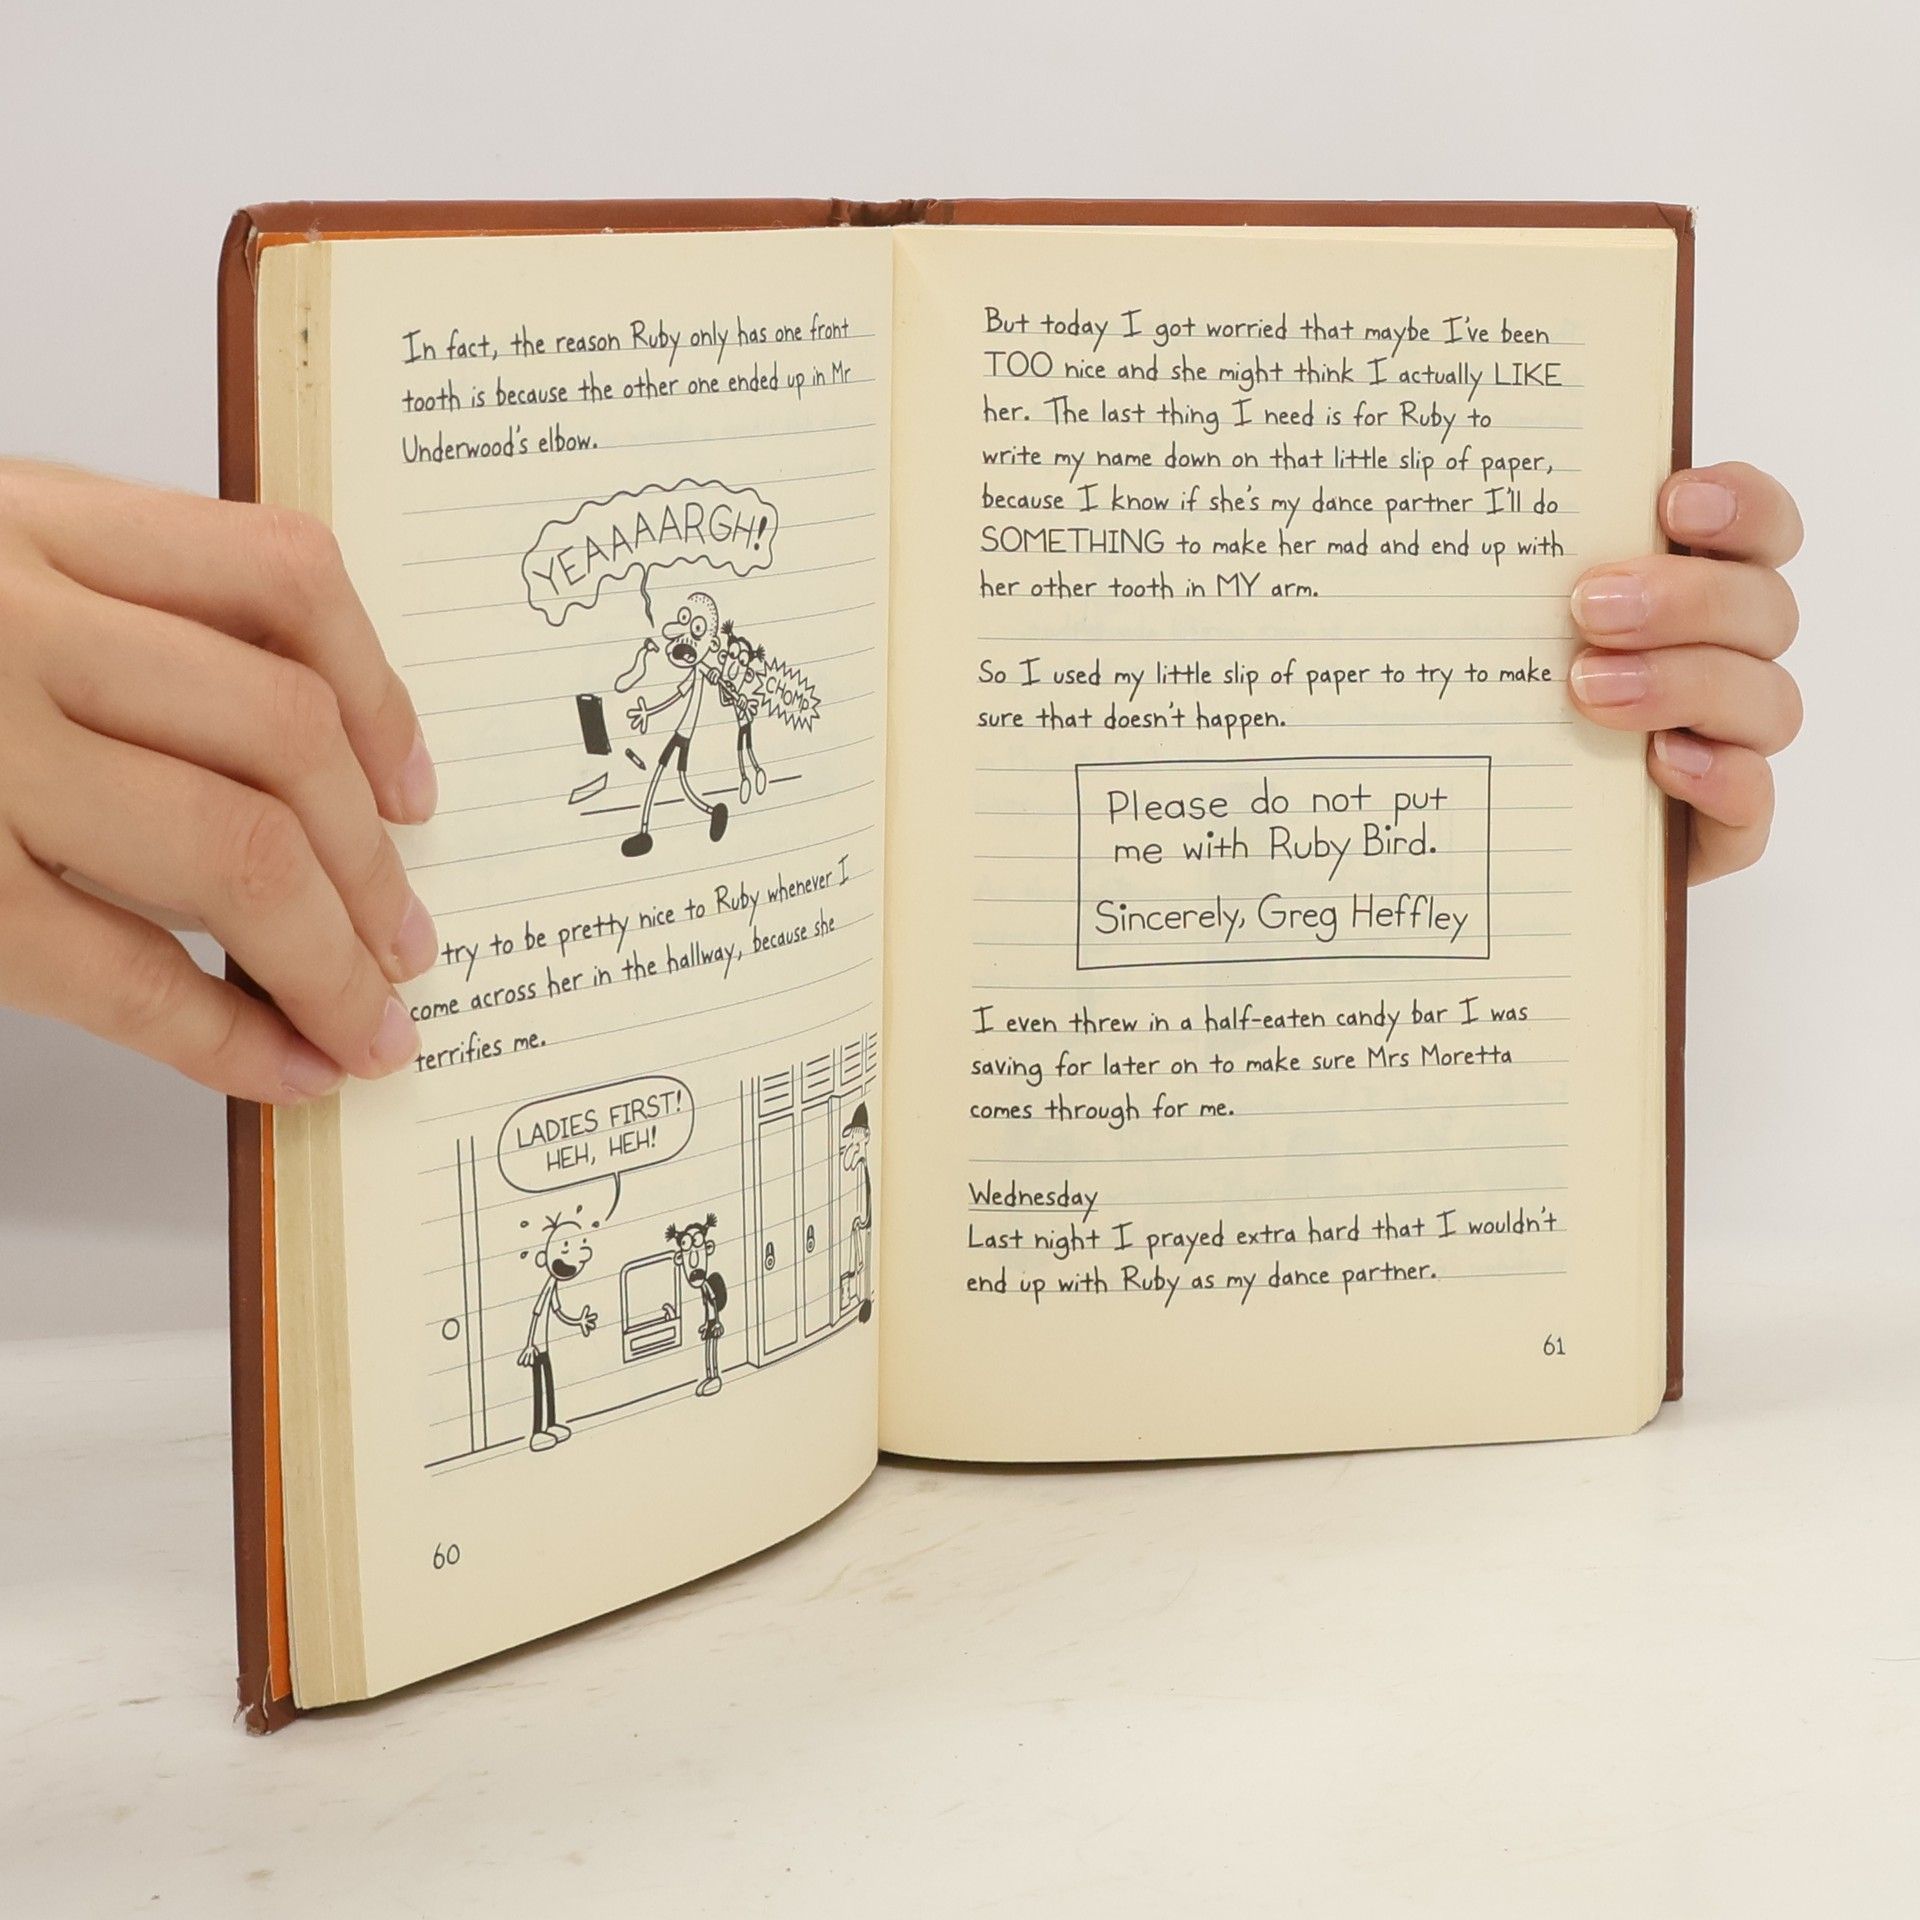 In fact, the reason Ruby only has one front
tooth is because the other one ended up in Mr
Underwood's elbow.
YEAAAAARGH!
CHOMP
try to be pretty nice to Ruby whenever I
come across her in the hallway, because she
terrifies me.
LADIES FIRST!
HEH, HEH!
60
But today I got worried that maybe I've been
TOO nice and she might think I actually LIKE
her. The last thing I need is for Ruby to
write my name down on that little slip of paper,
because I know if she's my dance partner I'll do
SOMETHING to make her mad and end up with
her other tooth in MY arm.
So I used my little slip of paper to try to make
sure that doesn't happen.
Please do not put
me with Ruby Bird.
Sincerely, Greg Heffley
I even threw in a half-eaten candy bar I was
saving for later on to make sure Mrs Moretta
comes through for me.
Wednesday
Last night I prayed extra hard that I wouldn't
end up with Ruby as my dance partner.
61